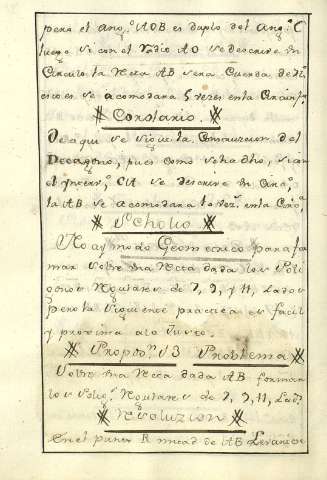 pero el ang.º AOB es duplo del Ang.º C
luego si con el Radio AO se descrive un
Circulo la Recta AB sera Cuerda de
es se acomodara 5 vezes en la
Corolario.
De aqui se sigue la Construcion del
Decagono, pues como se ha dho, si con
el CA se descrive un Circ.º
la AB se acomodara 10 vez.s en la
Scholio
No ay modo Geometrico para for
mar sobre una Recta dada los Poli
gonos Regulares de 7, 9, y 11, Lados
pero la siguiente practica es facil
y proxima a lo
Propos.n 13 Problema
Sobre una Recta dada AB formar
los Polig.s Regulares de 7, 9, 11, Lad.s
Resoluzion
En el punto R mitad de AB Levantese